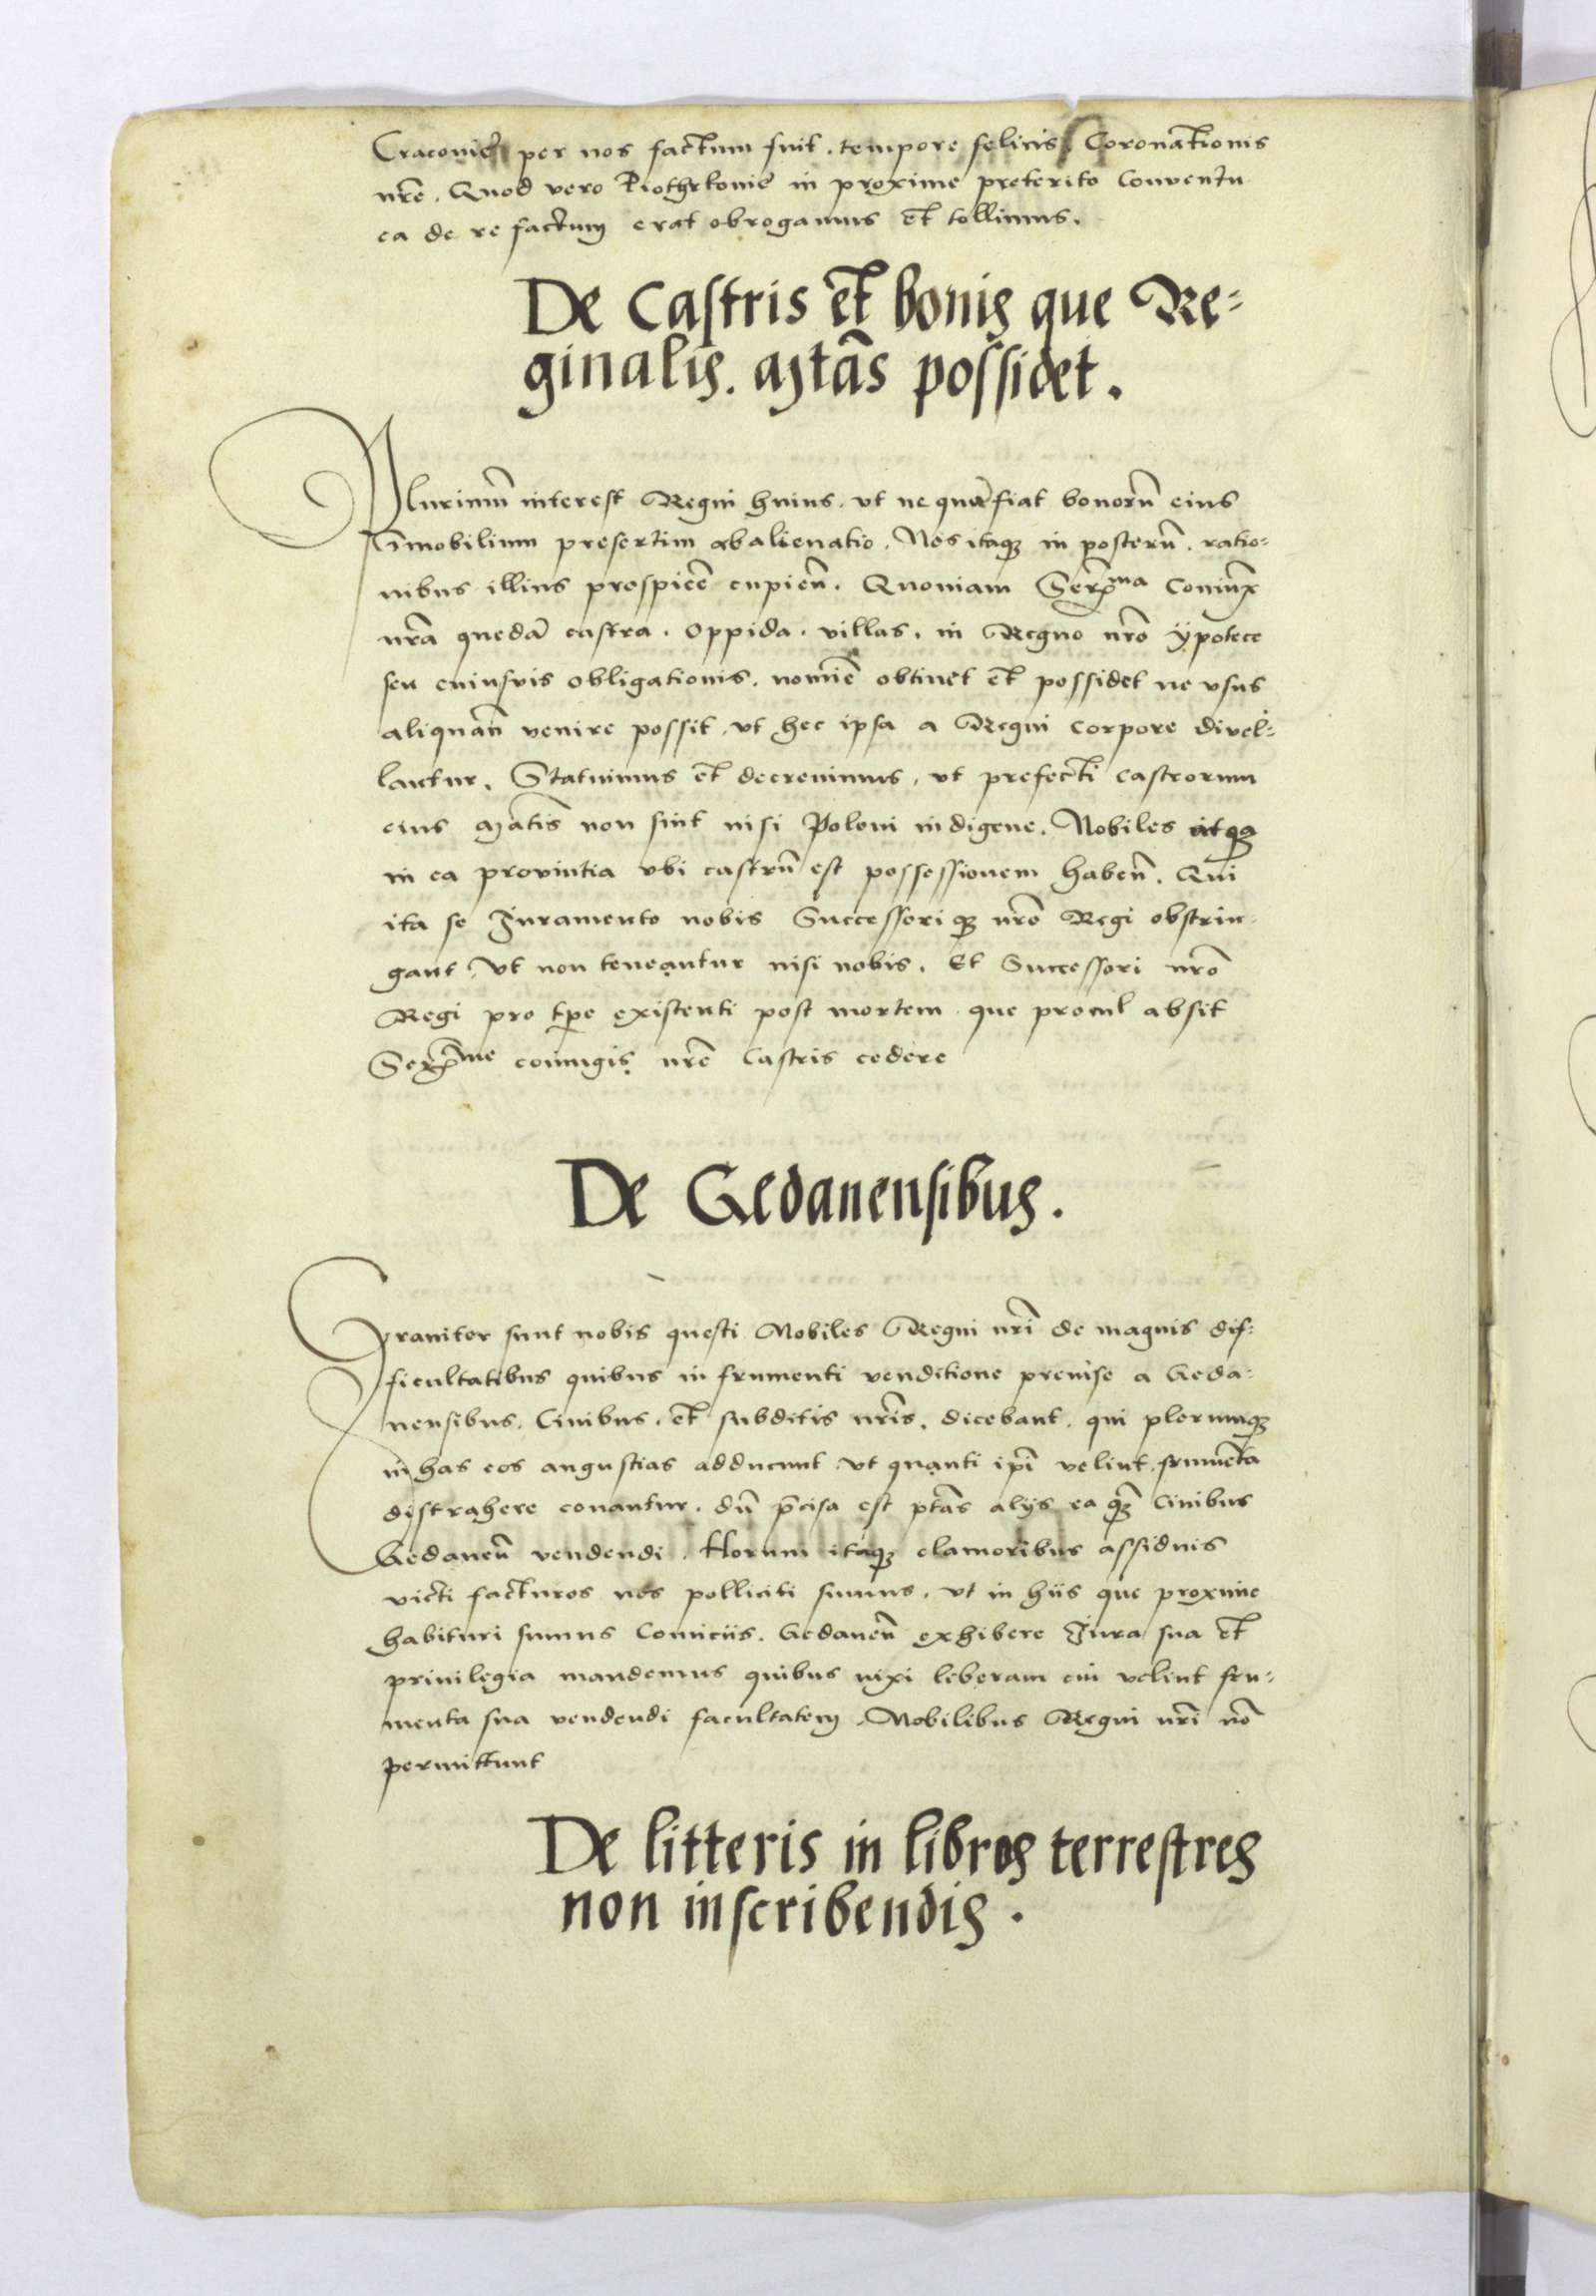 Cracovie per nos factum fuit. tempore felicis Coronationis
nr̃e. Quod vero Piothrkovie in proxime preterito Conventu
ea de re factum erat obrogamus et tollimus.
De Castris et bonis que Re=
ginalis. Mtãs possidet.
Plurimũ interest Regni huius. vt ne qua fiat bonorũ eius
ĩmobilium presertim abalienatio. Nos itaq; in posterũ. ratio=
nibus illius prospicẽ cupieñ. Quoniam Serᵐᵃ Coniũx
nr̃a quedã castra. oppida. villas. in Regno nr̃o ÿpotece
seu cuiusvis obligationis. nomiẽ obtinet et possidet ne vsus
aliquañ venire possit. vt hec ipsa a Regni corpore divel=
lantur. Statuimus et decrevimus. vt prefecti castrorum
eius Mãtis non sint nisi Poloni indigene. Nobiles atq;
in ea provintia vbi castrũ est possessionem habeñ. Qui
ita se Iuramento nobis Successoriq; nr̃o Regi obstrin
gant. Vt non teneantur nisi nobis. Et Successori nr̃o
Regi pro tp̃e existenti post mortem que procul absit
Serᵐᵉ coniugis nr̃e Castris cedere
De Gedanensibus.
Graviter sunt nobis questi Nobiles Regni nr̃i de magnis dif=
ficultatibus quibus in frumenti venditione premi se a Geda=
nensibus. Civibus. et subditis nr̃is. dicebant. qui plerumq;
in has eos angustias adducunt vt quanti ip̃i velint. frumẽta
distrahere conantur. dũ p̃cisa est ptãs alijs ea q̃ Civibus
Gedaneñ vendendi. Horum itaq; clamoribus assiduis
victi facturos nos polliciti sumus. vt in hiis que proxime
habituri sumus Comiciis. Gedaneñ exhibere Iura sua et
privilegia mandemus quibus nixi leberam cui velint fru=
menta sua vendendi facultatem. Nobilibus Regni nr̃i nõ
permittunt
De litteris in libros terrestres
non inscribendis.